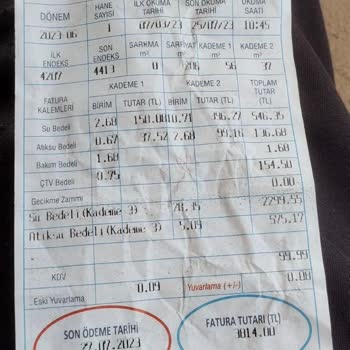 DÖNEM HANE SAYISI İLK OKUMA TARİHİ SON OKUMA TARİHİ OKUMA SAATİ
2023-06 1 07/03/23 25/07/23 10:45
İLK ENDEKS SON ENDEKS SARKMA m³ SARFİYAT m³ KADEME 1 KADEME 2
4207 4413 0 206 56 37
FATURA KALEMLERİ KADEME 1 KADEME 2 TOPLAM TUTAR (TL)
BİRİM TUTAR (TL) BİRİM TUTAR (TL)
Su Bedeli 2.68 150.08 10.71 396.27 546.35
Atıksu Bedeli 0.67 37.52 2.68 99.16 136.68
Bakım Bedeli 1.60 1.60
ÇTV Bedeli 0.75 154.50
Gecikme Zammı 0.00
Su Bedeli(Kademe 3) 20.35 2299.55
Atıksu Bedeli(Kademe 3) 5.09 575.17
KDV 99.99
Eski Yuvarlama 0.09 Yuvarlama (+/-) 0.08
SON ÖDEME TARİHİ FATURA TUTARI (TL)
27.07.2023 3814.00